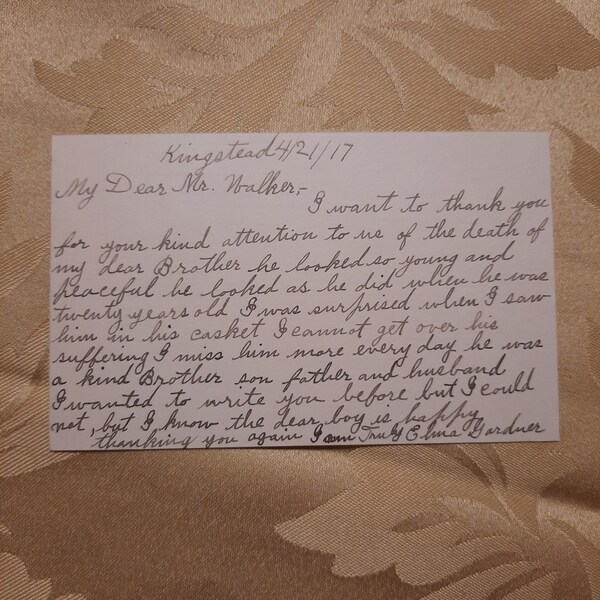 Kingstead 4/21/17
My Dear Mr. Walker,-
I want to thank you
for your kind attention to us of the death of
my dear Brother he looked so young and
peaceful he looked as he did when he was
twenty years old I was surprised when I saw
him in his casket I cannot get over his
suffering I miss him more every day he was
a kind Brother son father and husband
I wanted to write you bebore but I could
not, but I know the dear boy is happy
thanking you again I am Truly Elma Gardner